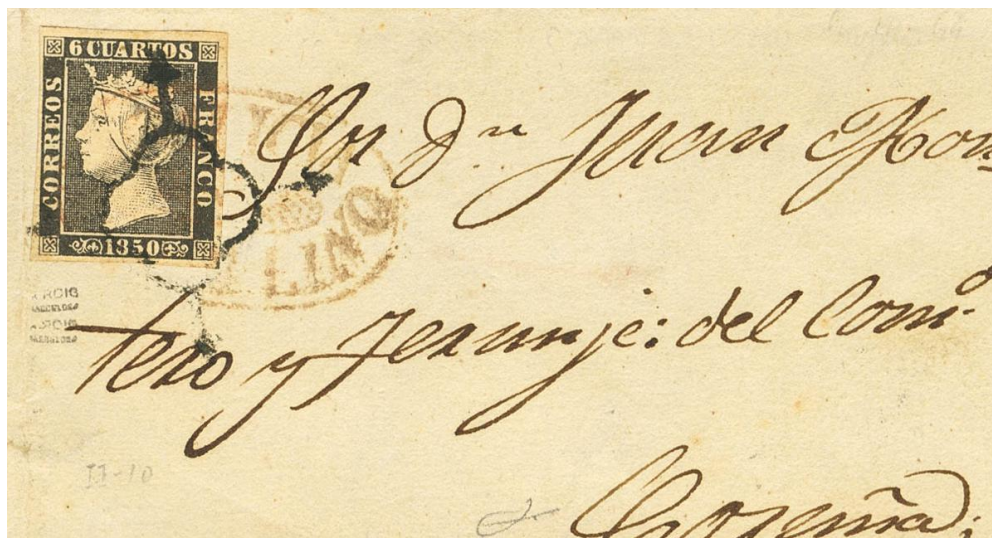 6 CUARTOS
CORREOS
FRANCO
1850
Sr Dn Juan Rom
tero y Terunje: del Comº
Coruña;
II-10